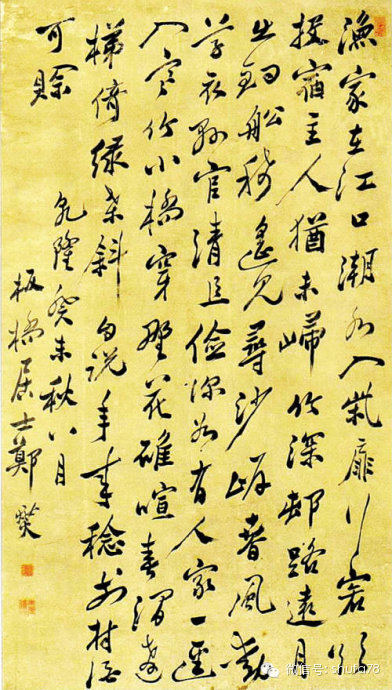 漁家在江口潮水入柴扉行客欲
投宿主人猶未歸竹深邨路遠月
出釣船稀遙見尋沙岸春風動
草衣縣官清且儉深谷有人家一逕
入寒竹小橋穿野花碓喧春澗滿
梯倚綠桑斜自説年來稔前村酒
可賒
乾隆癸未秋八月
板橋居士鄭燮
微信号: shufa78